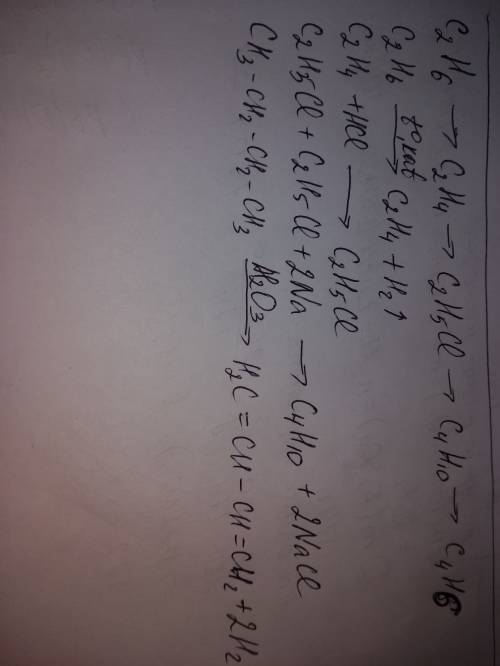 C₂H₆ → C₂H₄ → C₂H₅Cl → C₄H₁₀ → C₄H₆
C₂H₆ —t°, kat→ C₂H₄ + H₂↑
C₂H₄ + HCl → C₂H₅Cl
C₂H₅Cl + C₂H₅Cl + 2Na → C₄H₁₀ + 2NaCl
CH₃ – CH₂ – CH₂ – CH₃ —Al₂O₃→ H₂C = CH – CH = CH₂ + 2H₂